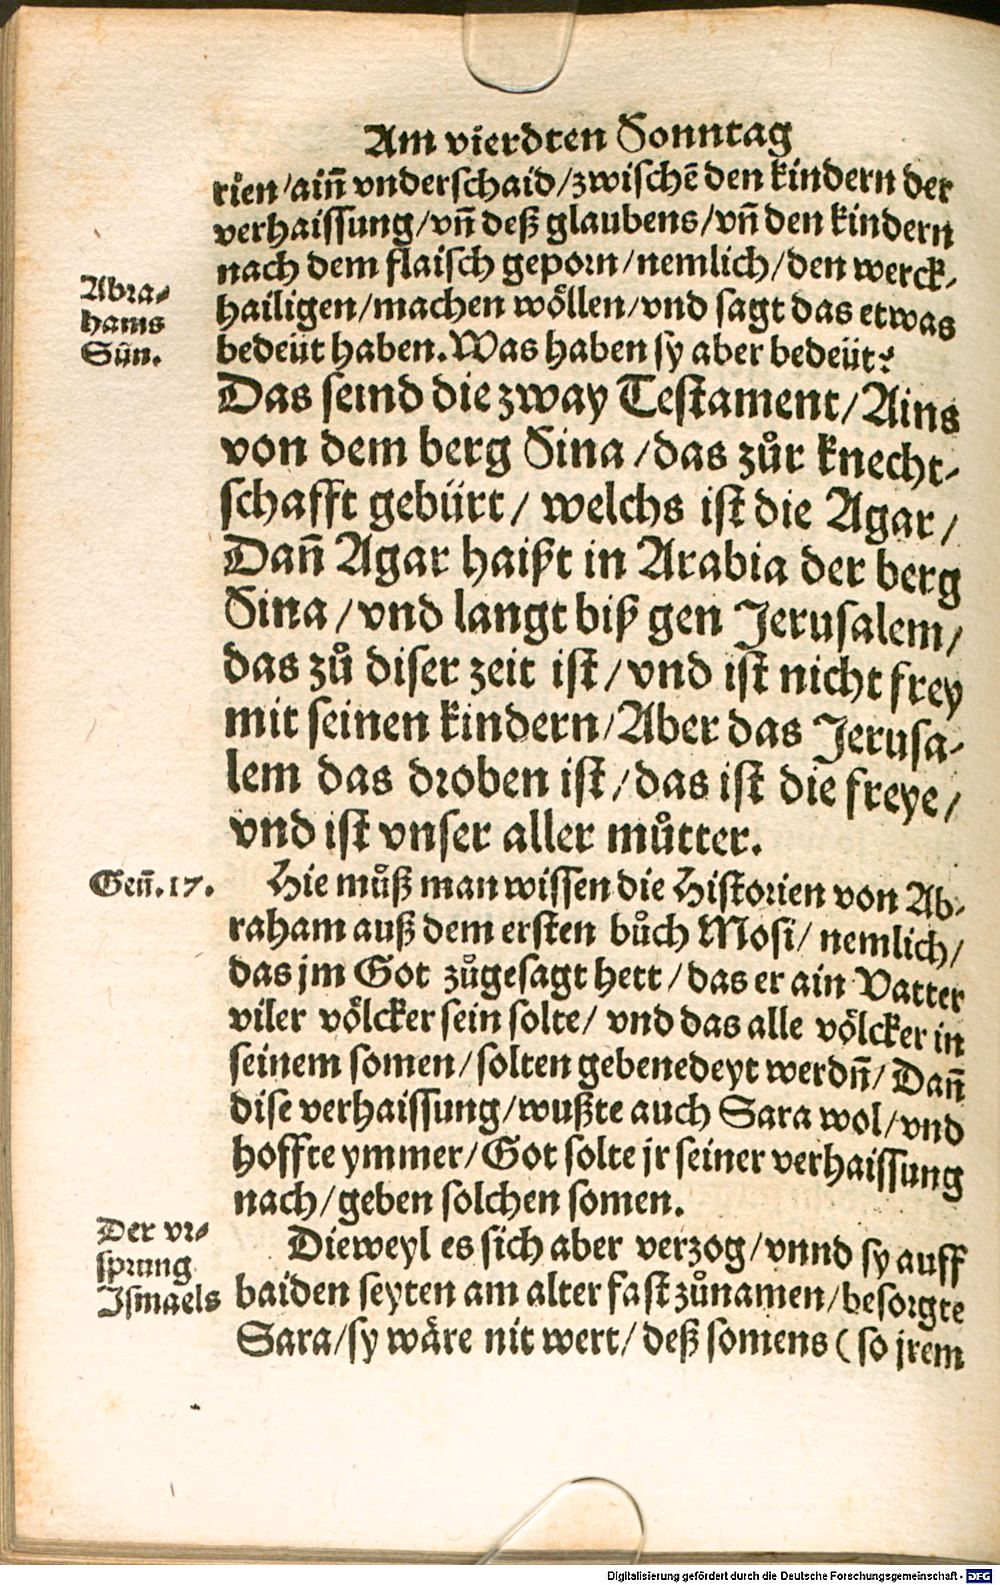 Am vierdten Sonntag
rien/ainn̄ vnderschaid/zwischē den kindern der
verhaissung/vn̄ deß glaubens/vn̄ den kindern
nach dem flaisch geporn/nemlich/den werck-
hailigen/machen wöllen/vnd sagt das etwas
bedeüt haben. Was haben sy aber bedeüt?
Abra-
hams
Sün.
Das seind die zway Testament/Ains
von dem berg Sina/das zůr knecht-
schafft gebürt/ welchs ist die Agar/
Dann̄ Agar haißt in Arabia der berg
Sina/vnd langt biß gen Jerusalem/
das zů diser zeit ist/vnd ist nicht frey
mit seinen kindern/Aber das Jerusa-
lem das droben ist/das ist die freye/
vnd ist vnser aller můtter.
Gen̄.17.
Hie můß man wissen die Historien von Ab-
raham auß dem ersten bůch Mosi/ nemlich/
das jm Got zůgesagt hett/das er ain Vatter
viler völcker sein solte/ vnd das alle völcker in
seinem somen/solten gebenedeyt werdn̄/Dan̄
dise verhaissung/wußte auch Sara wol/vnd
hoffte ymmer/Got solte jr seiner verhaissung
nach/geben solchen somen.
Der vr-
sprung
Ismaels
Dieweyl es sich aber verzog/vnnd sy auff
baiden seyten am alter fast zůnamen/besorgte
Sara/sy wäre nit wert/deß somens (so jrem
Digitalisierung gefördert durch die Deutsche Forschungsgemeinschaft - DFG